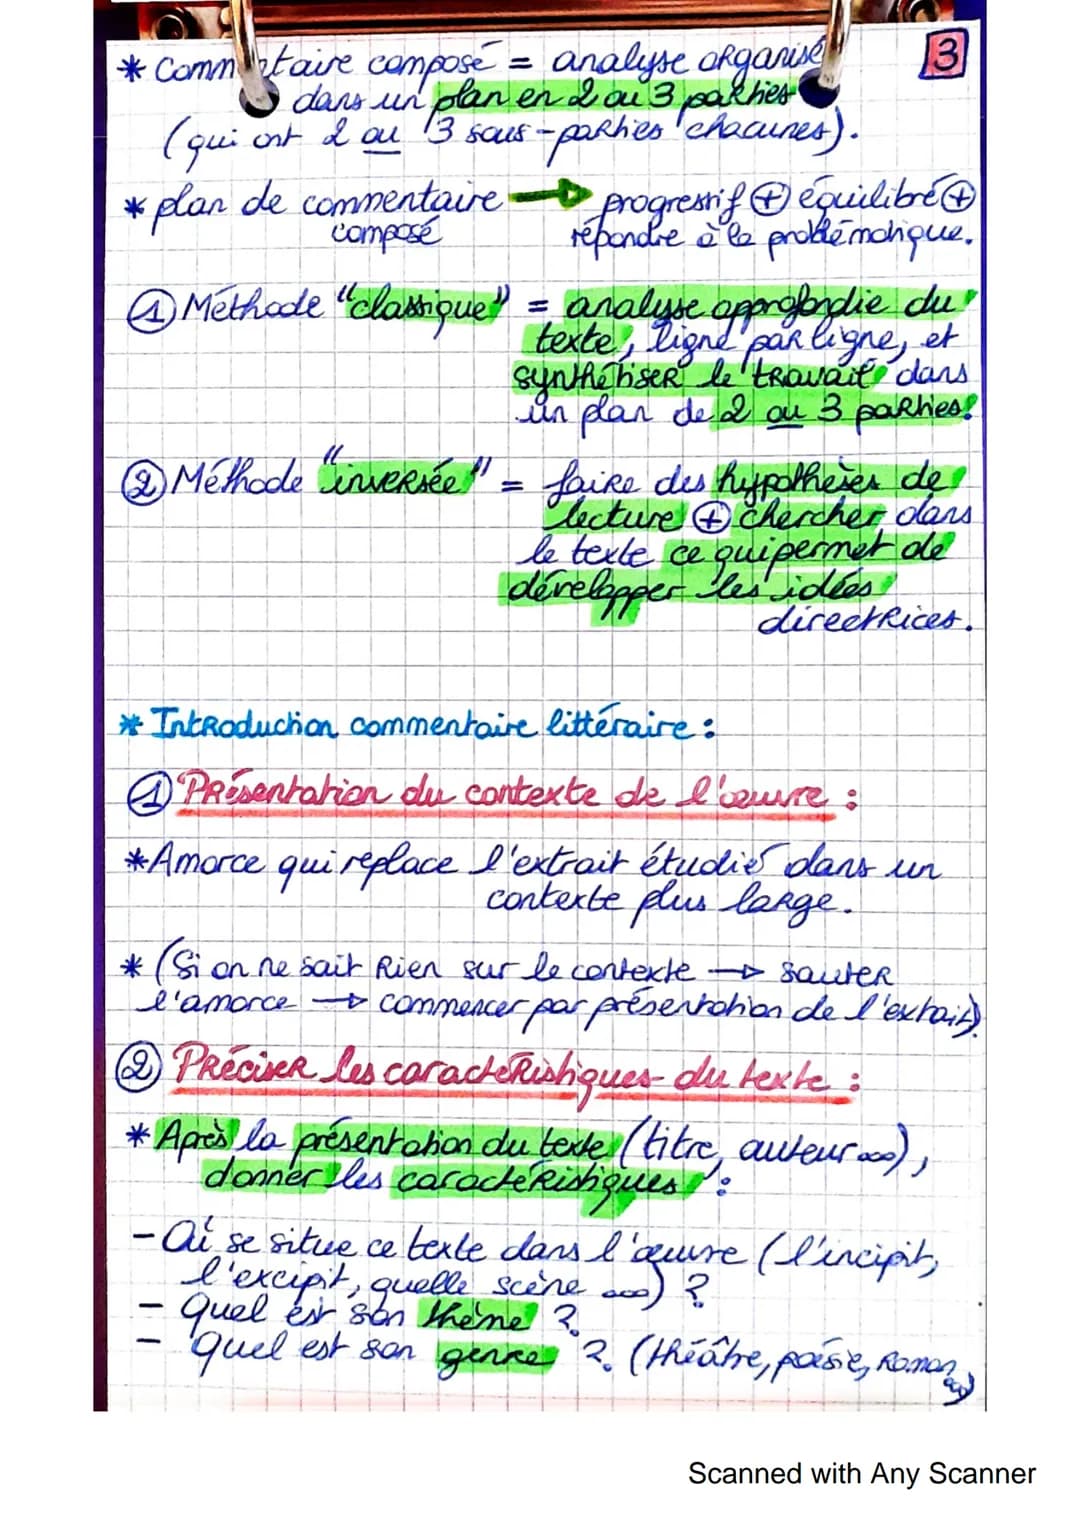 3
* Commentaire composé = analyse organisé
dans un plan en 2 ou 3 parties
(qui ont 2 ou 3 sous-parties chacunes).
* plan de commentaire → progressif + équilibré +
composé répondre à la problématique.
① Méthode "classique" = analyse approfondie du
texte, ligne par ligne, et
synthétiser le travail dans
un plan de 2 ou 3 parties.
② Méthode "inversée" = faire des hypothèses de
lecture + chercher dans
le texte ce qui permet de
développer les idées
directrices.
* Introduction commentaire littéraire :
① Présentation du contexte de l'œuvre :
* Amorce qui replace l'extrait étudié dans un
contexte plus large.
* (Si on ne sait rien sur le contexte → sauter
l'amorce → commencer par présentation de l'extait).
② Préciser les caractéristiques du texte :
* Après la présentation du texte (titre, auteur ...),
donner les caractéristiques :
- Où se situe ce texte dans l'œuvre (l'incipit,
l'excipit, quelle scène ...) ?
- quel est son thème ?
- quel est son genre ? (théâtre, poésie, roman
...)
Scanned with Any Scanner